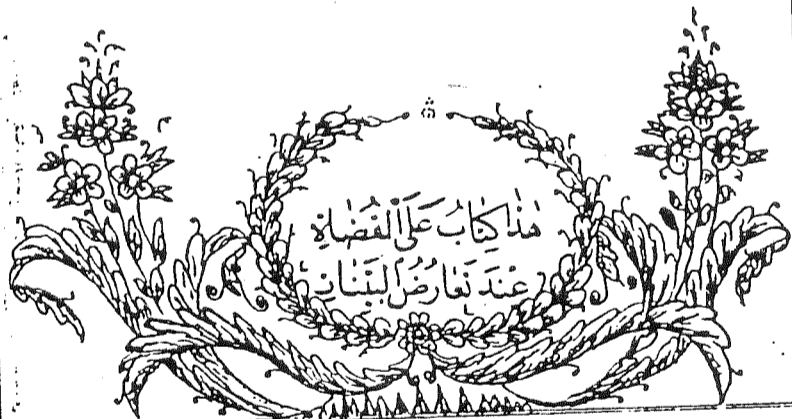 هٰذَا كِتَابُ عَلَى الْقُضَاةِ
عِنْدَ تَعَارُضُ الْبَيِّنَاتِ